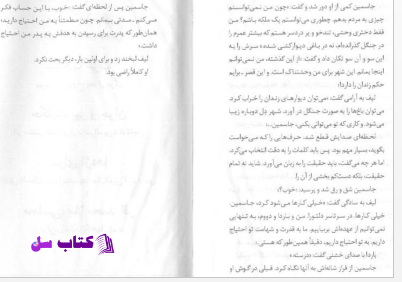 جاسمین کمی از او دور شد و گفت: «چون من نمی‌توانستم
چیزی به مردم بدهم. چطوری می‌توانستم یک ملکه باشم؟ من
فقط دختری وحشی، تندخو و پر دردسر هستم که بیشتر عمرم را
در جنگل گذرانده‌ام، نه در باغی دیوارکشی شده.» سرش را به
این سو و آن سو تکان داد و گفت: «از این گذشته، من نمی‌توانم
اینجا بمانم. این شهر برای من وحشتناک است، و این قصر، برایم
حکم زندان را دارد!»
لیف به آرامی گفت: «می‌توان دیوارهای زندان را خراب کرد.
می‌توان باغ‌ها را به صورت جنگل در آورد. شهر دل دوباره زیبا
می‌شود. و کاری که تو می‌توانی بکنی، جاسمین...»
لحظه‌ای صدایش قطع شد. حرف‌هایی را که می‌خواست
بگوید، بسیار مهم بود. پس باید کلمات را به دقت انتخاب می‌کرد.
اما هر چه می‌گفت، باید حقیقت را به زبان می‌آورد. شاید نه تمام
حقیقت، بلکه دست‌کم بخشی از آن را.
جاسمین شق و رق شد و پرسید: «خوب؟»
لیف به سادگی گفت: «خیلی کارها می‌شود کرد، جاسمین.
خیلی کارها. در سرتاسر دلتورا. من و باردا و دووم، به تنهایی
نمی‌توانیم از عهده‌اش برآییم. ما به قدرت و شهامت تو احتیاج
داریم. به تو احتیاج داریم. دقیقاً همین‌طور که هستی.»
باردا با صدای خشنی گفت: «درسته.»
جاسمین از فراز شانه‌اش به آنها نگاه کرد. فیلی در گوش او
جاسمین پس از لحظه‌ای گفت: «خوب، با این حساب فکر
می‌کنم... مدتی بمانم. چون مطمئناً به من احتیاج دارید؛
همان‌طور که پدرت برای رسیدن به هدفش به پدر من احتیاج
داشت.»
لیف لبخند زد و برای اولین بار، دیگر بحث نکرد.
او کاملاً راضی بود.
کتاب سل